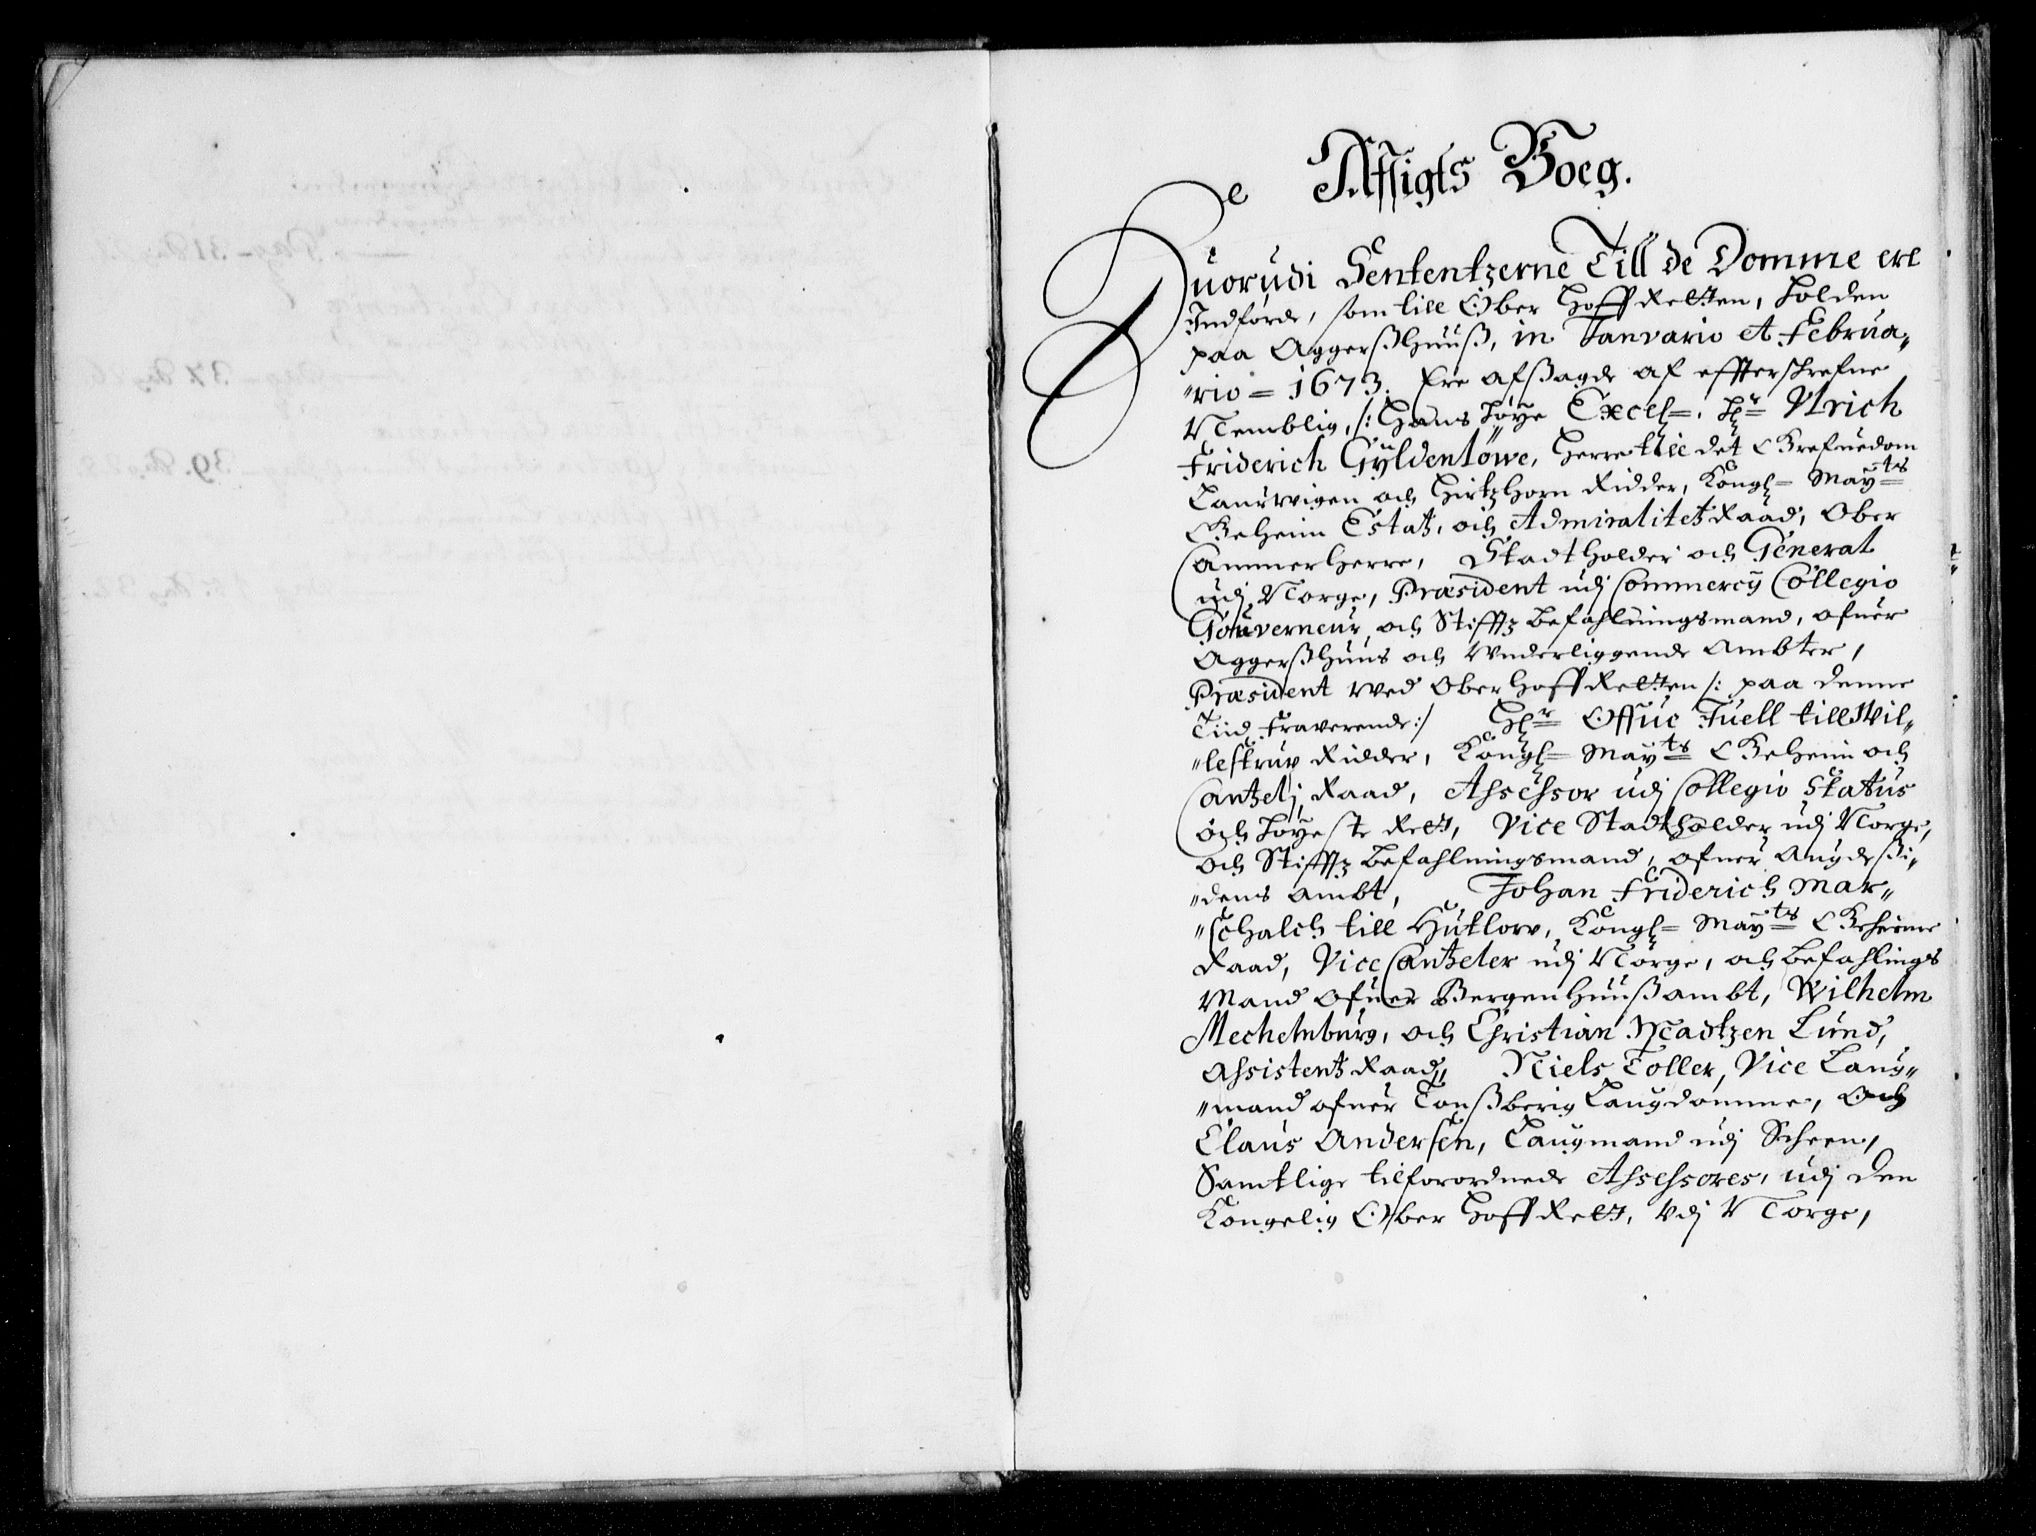 Affsigts Boeg.
Huorudi Sententzerne Till de Domme ere
Indførde, som till Ober Hoff Retten, holden
paa Aggerßhuuß, in Januario et Februa„
„rio = 1673. Ere afßagde af effterschrefne
Nemblig, /: Hans høye Excell=, Hr= Ulrich
Friderich Gyldenløwe, Herre till det Grefuedom
Laurwigen och Hirtzhorn Ridder, Kongl= Mayts
Geheim Estatz, och Admiralitetz Raad, Ober
Cammerherre, Stadtholder och General
udj Norge, Præsident udj Commercij Collegio
Gouverneur, och Stifftz befahlningsmand, ofuer
Aggerßhuus och Underliggende Ambter,
Præsident wed Ober Hoff Retten /: paa denne
Tiid fraverende :/ Hr= Offue Juell till Wil„
„lestrup Ridder, Kongl= Mayts Geheim och
Cantzelj Raad, Assessor udj Collegio Status
och høyeste Rett, Vice Stadtholder udj Norge,
och Stifftz befahlningsmand, ofuer Augdeßi„
„dens Ambt, Johan Friderich Mar„
„schalch till Hutlow, Kongl= Mayts Geheime
Raad, Vice Cantzeler udj Norge, och befahlings
Mand ofuer Bergenhuußambt, Wilhelm
Mechelnburg, och Christian Madtzen Lund,
Assistentz Raad, Niels Toller, Vice Laug„
„mand ofuer Tonßberig Laugdomme, Och
Claus Andersen, Laugmand udj Scheen,
Samtlige tilforordnede Assessores, udj den
Kongelig Ober Hoff Rett, Udj Norge,